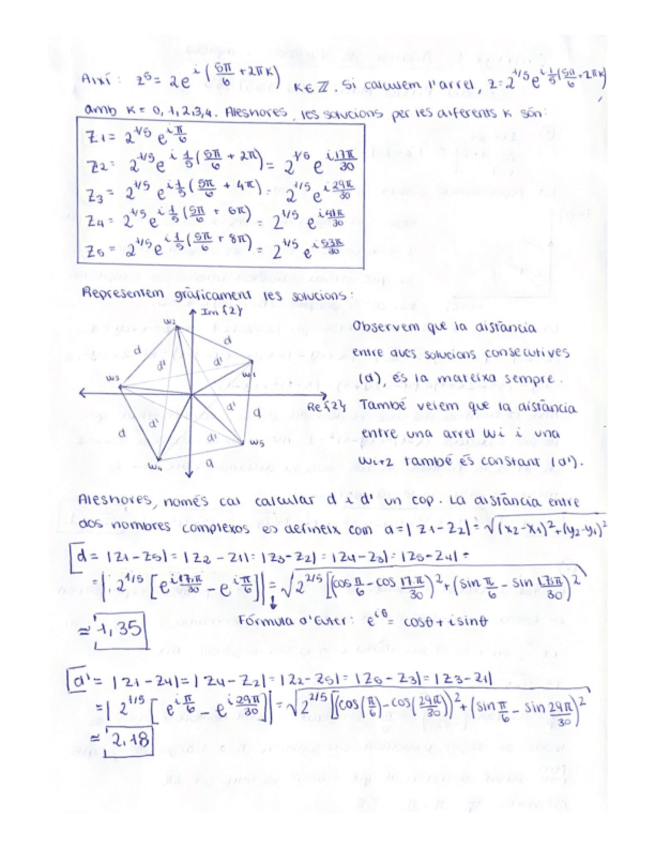 Així: z⁵ = 2e^{i(5π/6 + 2πk)} k∈ℤ. Si calculem l'arrel, z = 2^{1/5} e^{i 1/5 (5π/6 + 2πk)}
amb k = 0, 1, 2, 3, 4. Aleshores, les solucions per les diferents k són:
Z1 = 2^{1/5} e^{i π/6}
Z2 = 2^{1/5} e^{i 1/5 (5π/6 + 2π)} = 2^{1/5} e^{i 17π/30}
Z3 = 2^{1/5} e^{i 1/5 (5π/6 + 4π)} = 2^{1/5} e^{i 29π/30}
Z4 = 2^{1/5} e^{i 1/5 (5π/6 + 6π)} = 2^{1/5} e^{i 41π/30}
Z5 = 2^{1/5} e^{i 1/5 (5π/6 + 8π)} = 2^{1/5} e^{i 53π/30}
Representem gràficament les solucions:
Im{z}
w2
d
d
d'
w3
w1
d'
d'
Re{z}
d
d'
d
d'
w5
w4
d
Observem que la distància
entre dues solucions consecutives
(d), és la mateixa sempre.
També veiem que la distància
entre una arrel wi i una
wi+2 també és constant (d').
Aleshores, només cal calcular d i d' un cop. La distància entre
dos nombres complexos es defineix com d = |z1 - z2| = √((x2-x1)² + (y2-y1)²
d = |z1 - z5| = |z2 - z1| = |z3 - z2| = |z4 - z3| = |z5 - z4| =
= |2^{1/5} [e^{i 17π/30} - e^{i π/6}]| = √(2^{2/5} [(cos π/6 - cos 17π/30)² + (sin π/6 - sin 17π/30)²
≃ 1,35
Fórmula d'Euler: e^{iθ} = cosθ + i sinθ
d' = |z1 - z4| = |z4 - z2| = |z2 - z5| = |z5 - z3| = |z3 - z1|
= |2^{1/5} [e^{i π/6} - e^{i 29π/30}]| = √(2^{2/5} [(cos(π/6) - cos(29π/30))² + (sin π/6 - sin 29π/30)²
≃ 2,18